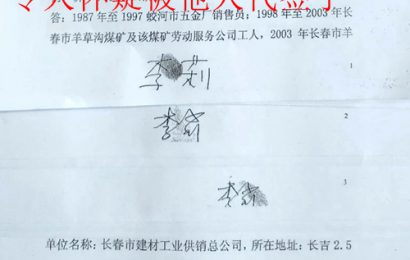 令人怀疑被他人代签字
答：1987年至1997蛟河市五金厂销售员；1998年至2003年长
春市羊草沟煤矿及该煤矿劳动服务公司工人，2003年长春市羊
李莉
1
李
2
李
3
单位名称：长春市建材工业供销总公司，所在地址：长吉2.5